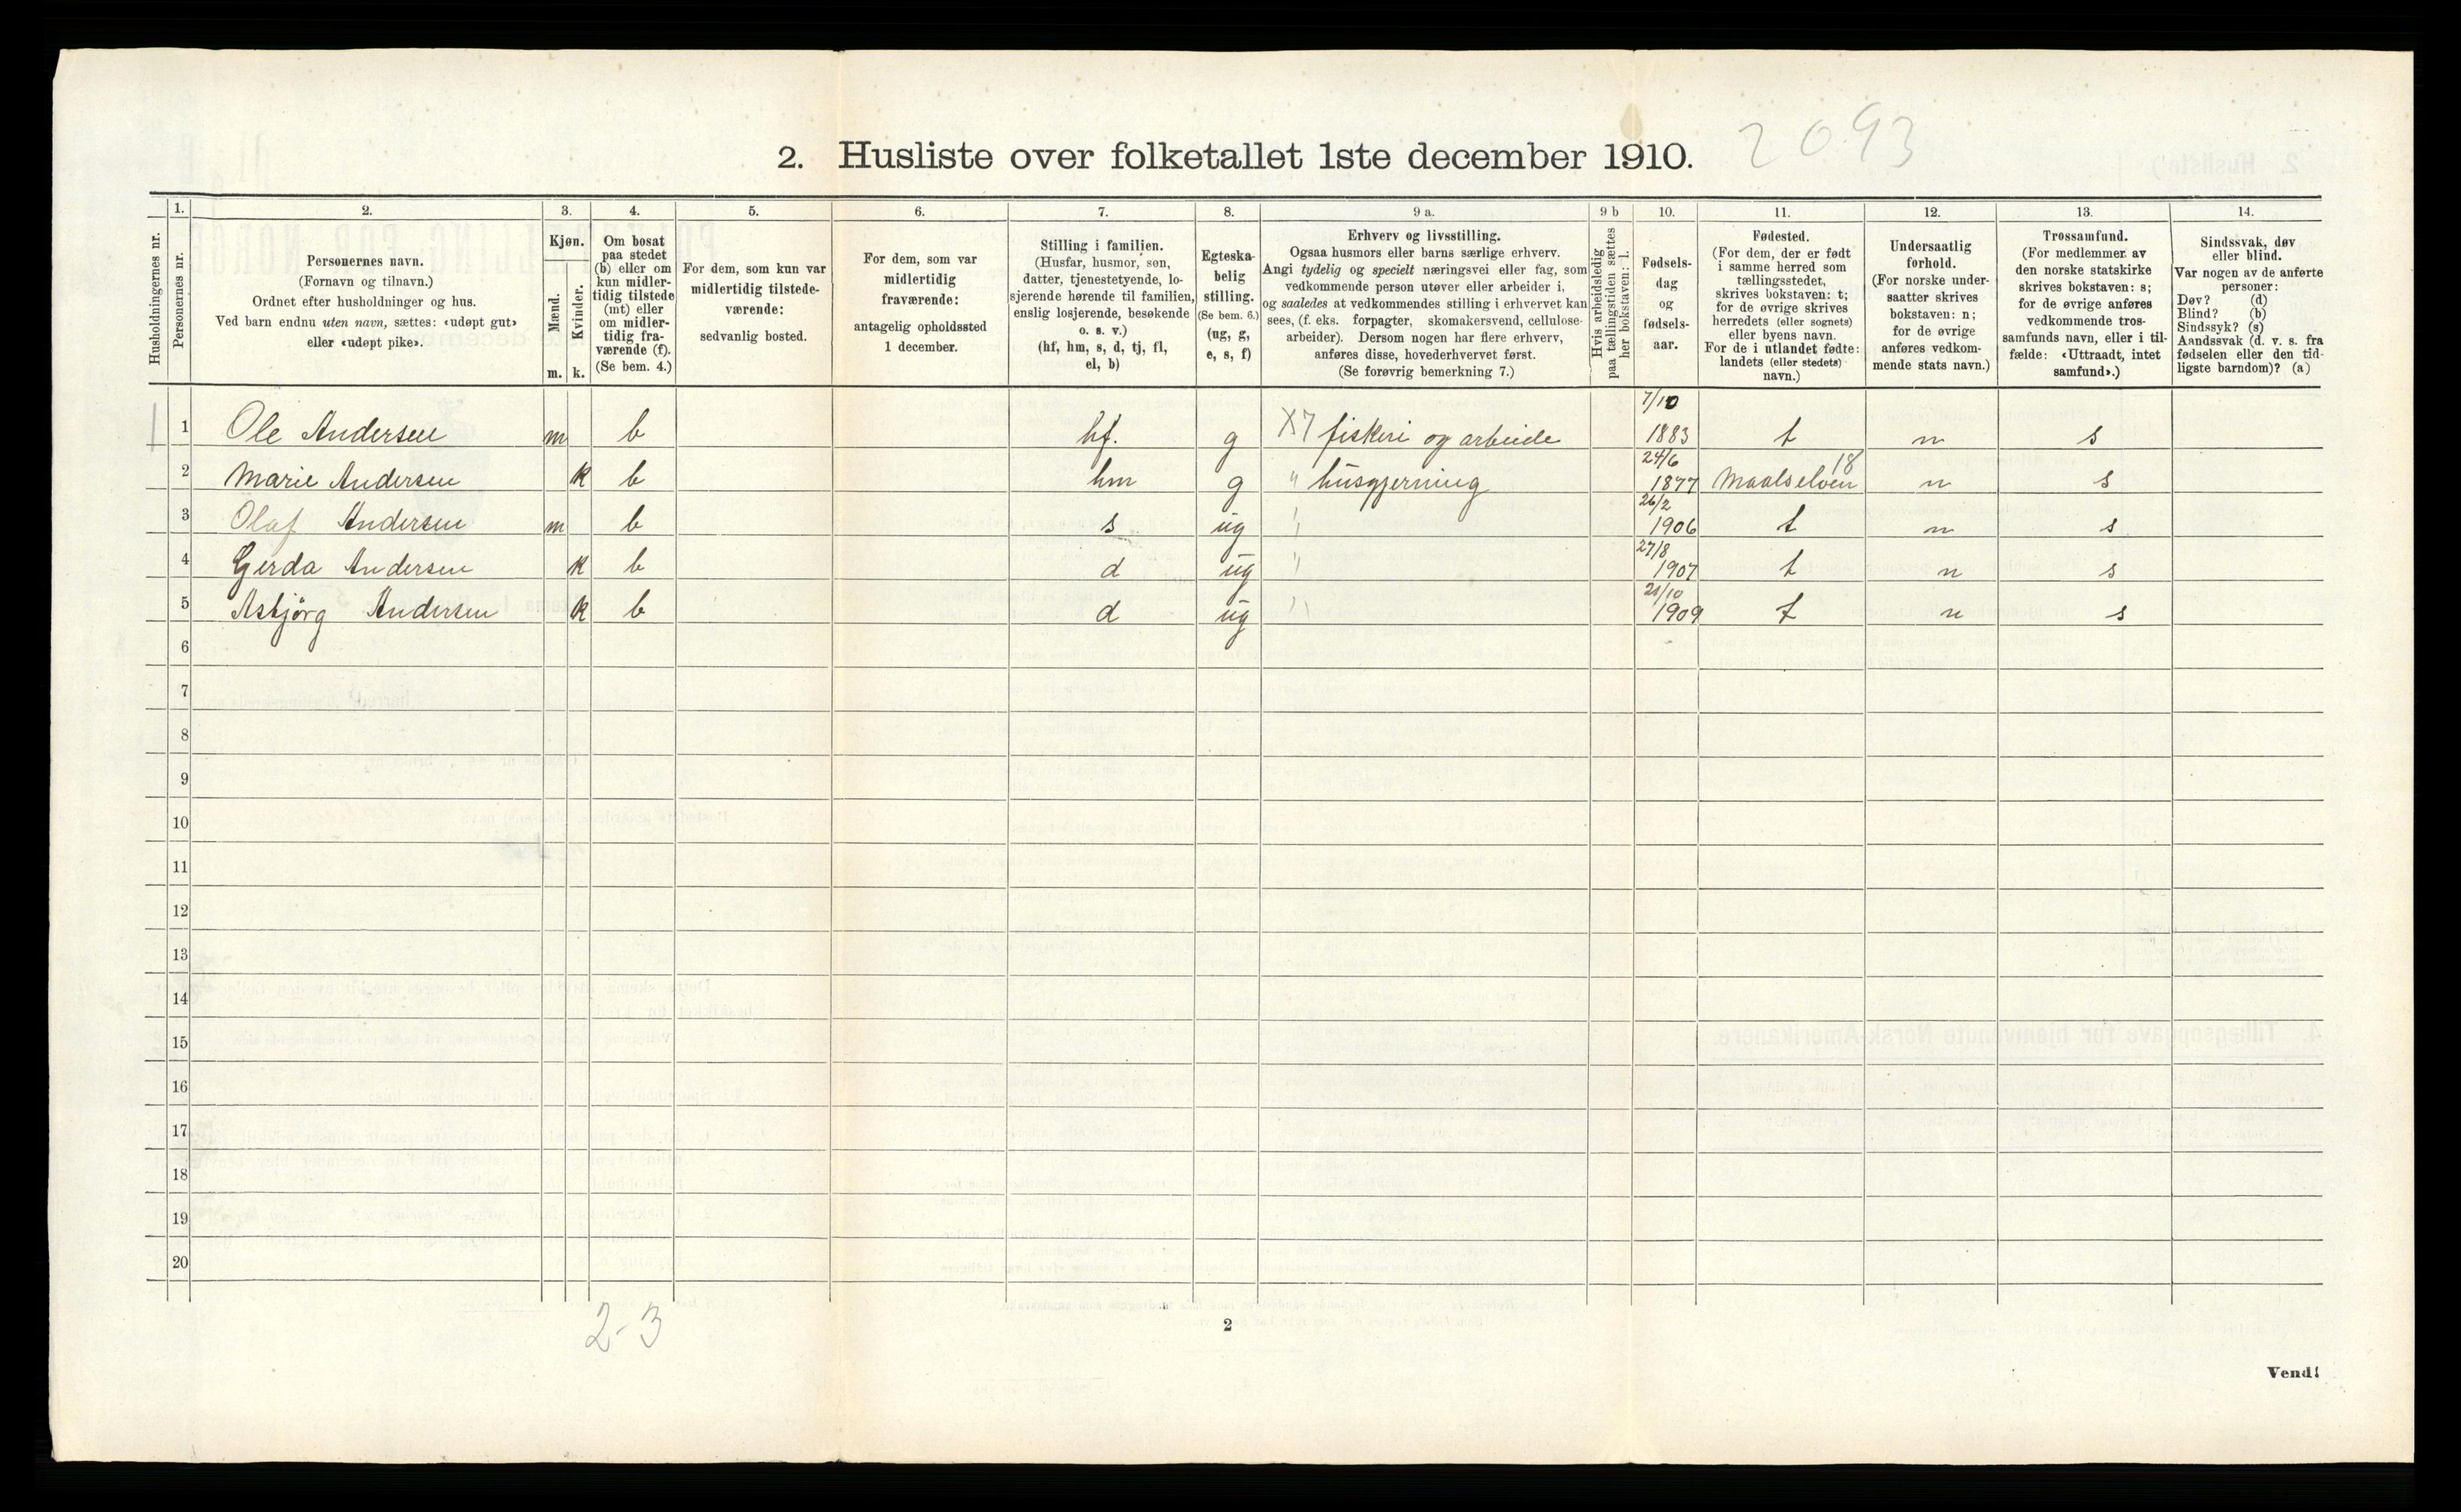 2. Husliste over folketallet 1ste december 1910. 2093
Husholdningernes nr.
1.
Personernes nr.
2.
Personernes navn.
(Fornavn og tilnavn.)
Ordnet efter husholdninger og hus.
Ved barn endnu uten navn, sættes: «udøpt gut»
eller «udøpt pike».
3.
Kjøn.
Mænd.
Kvinder.
m. k.
4.
Om bosat
paa stedet
(b) eller om
kun midler-
tidig tilstede
(mt) eller
om midler-
tidig fra-
værende (f).
(Se bem. 4.)
5.
For dem, som kun var
midlertidig tilstede-
værende:
sedvanlig bosted.
6.
For dem, som var
midlertidig
fraværende:
antagelig opholdssted
1 december.
7.
Stilling i familien.
(Husfar, husmor, søn,
datter, tjenestetyende, lo-
sjerende hørende til familien,
enslig losjerende, besøkende
o. s. v.)
(hf, hm, s, d, tj, fl,
el, b)
8.
Egteska-
belig
stilling.
(Se bem. 6.)
(ug, g,
e, s, f)
9 a.
Erhverv og livsstilling.
Ogsaa husmors eller barns særlige erhverv.
Angi tydelig og specielt næringsvei eller fag, som
vedkommende person utøver eller arbeider i,
og saaledes at vedkommendes stilling i erhvervet kan
sees, (f. eks. forpagter, skomakersvend, cellulose-
arbeider). Dersom nogen har flere erhverv,
anføres disse, hovederhvervet først.
(Se forøvrig bemerkning 7.)
9 b
Hvis arbeidsledig
paa tællingstiden sættes
her bokstaven: l.
10.
Fødsels-
dag
og
fødsels-
aar.
11.
Fødested.
(For dem, der er født
i samme herred som
tællingsstedet,
skrives bokstaven: t;
for de øvrige skrives
herredets (eller sognets)
eller byens navn.
For de i utlandet fødte:
landets (eller stedets)
navn.)
12.
Undersaatlig
forhold.
(For norske under-
saatter skrives
bokstaven: n;
for de øvrige
anføres vedkom-
mende stats navn.)
13.
Trossamfund.
(For medlemmer av
den norske statskirke
skrives bokstaven: s;
for de øvrige anføres
vedkommende tros-
samfunds navn, eller i til-
fælde: «Uttraadt, intet
samfund».)
14.
Sindssvak, døv
eller blind.
Var nogen av de anførte
personer:
Døv? (d)
Blind? (b)
Sindssyk? (s)
Aandssvak (d. v. s. fra
fødselen eller den tid-
ligste barndom)? (a)
1 1 Ole Andersen m b hf. g X7 fiskeri og arbeide 7/10 1883 t n s
2 Marie Andersen k b hm g " husgjerning 24/6 1877 Maalselven 18 n s
3 Olaf Andersen m b s ug " 26/2 1906 t n s
4 Gerda Andersen k b d ug " 27/8 1907 t n s
5 Asbjörg Andersen k b d ug " 21/10 1909 t n s
6
7
8
9
10
11
12
13
14
15
16
17
18
19
20
2-3
2
Vend!